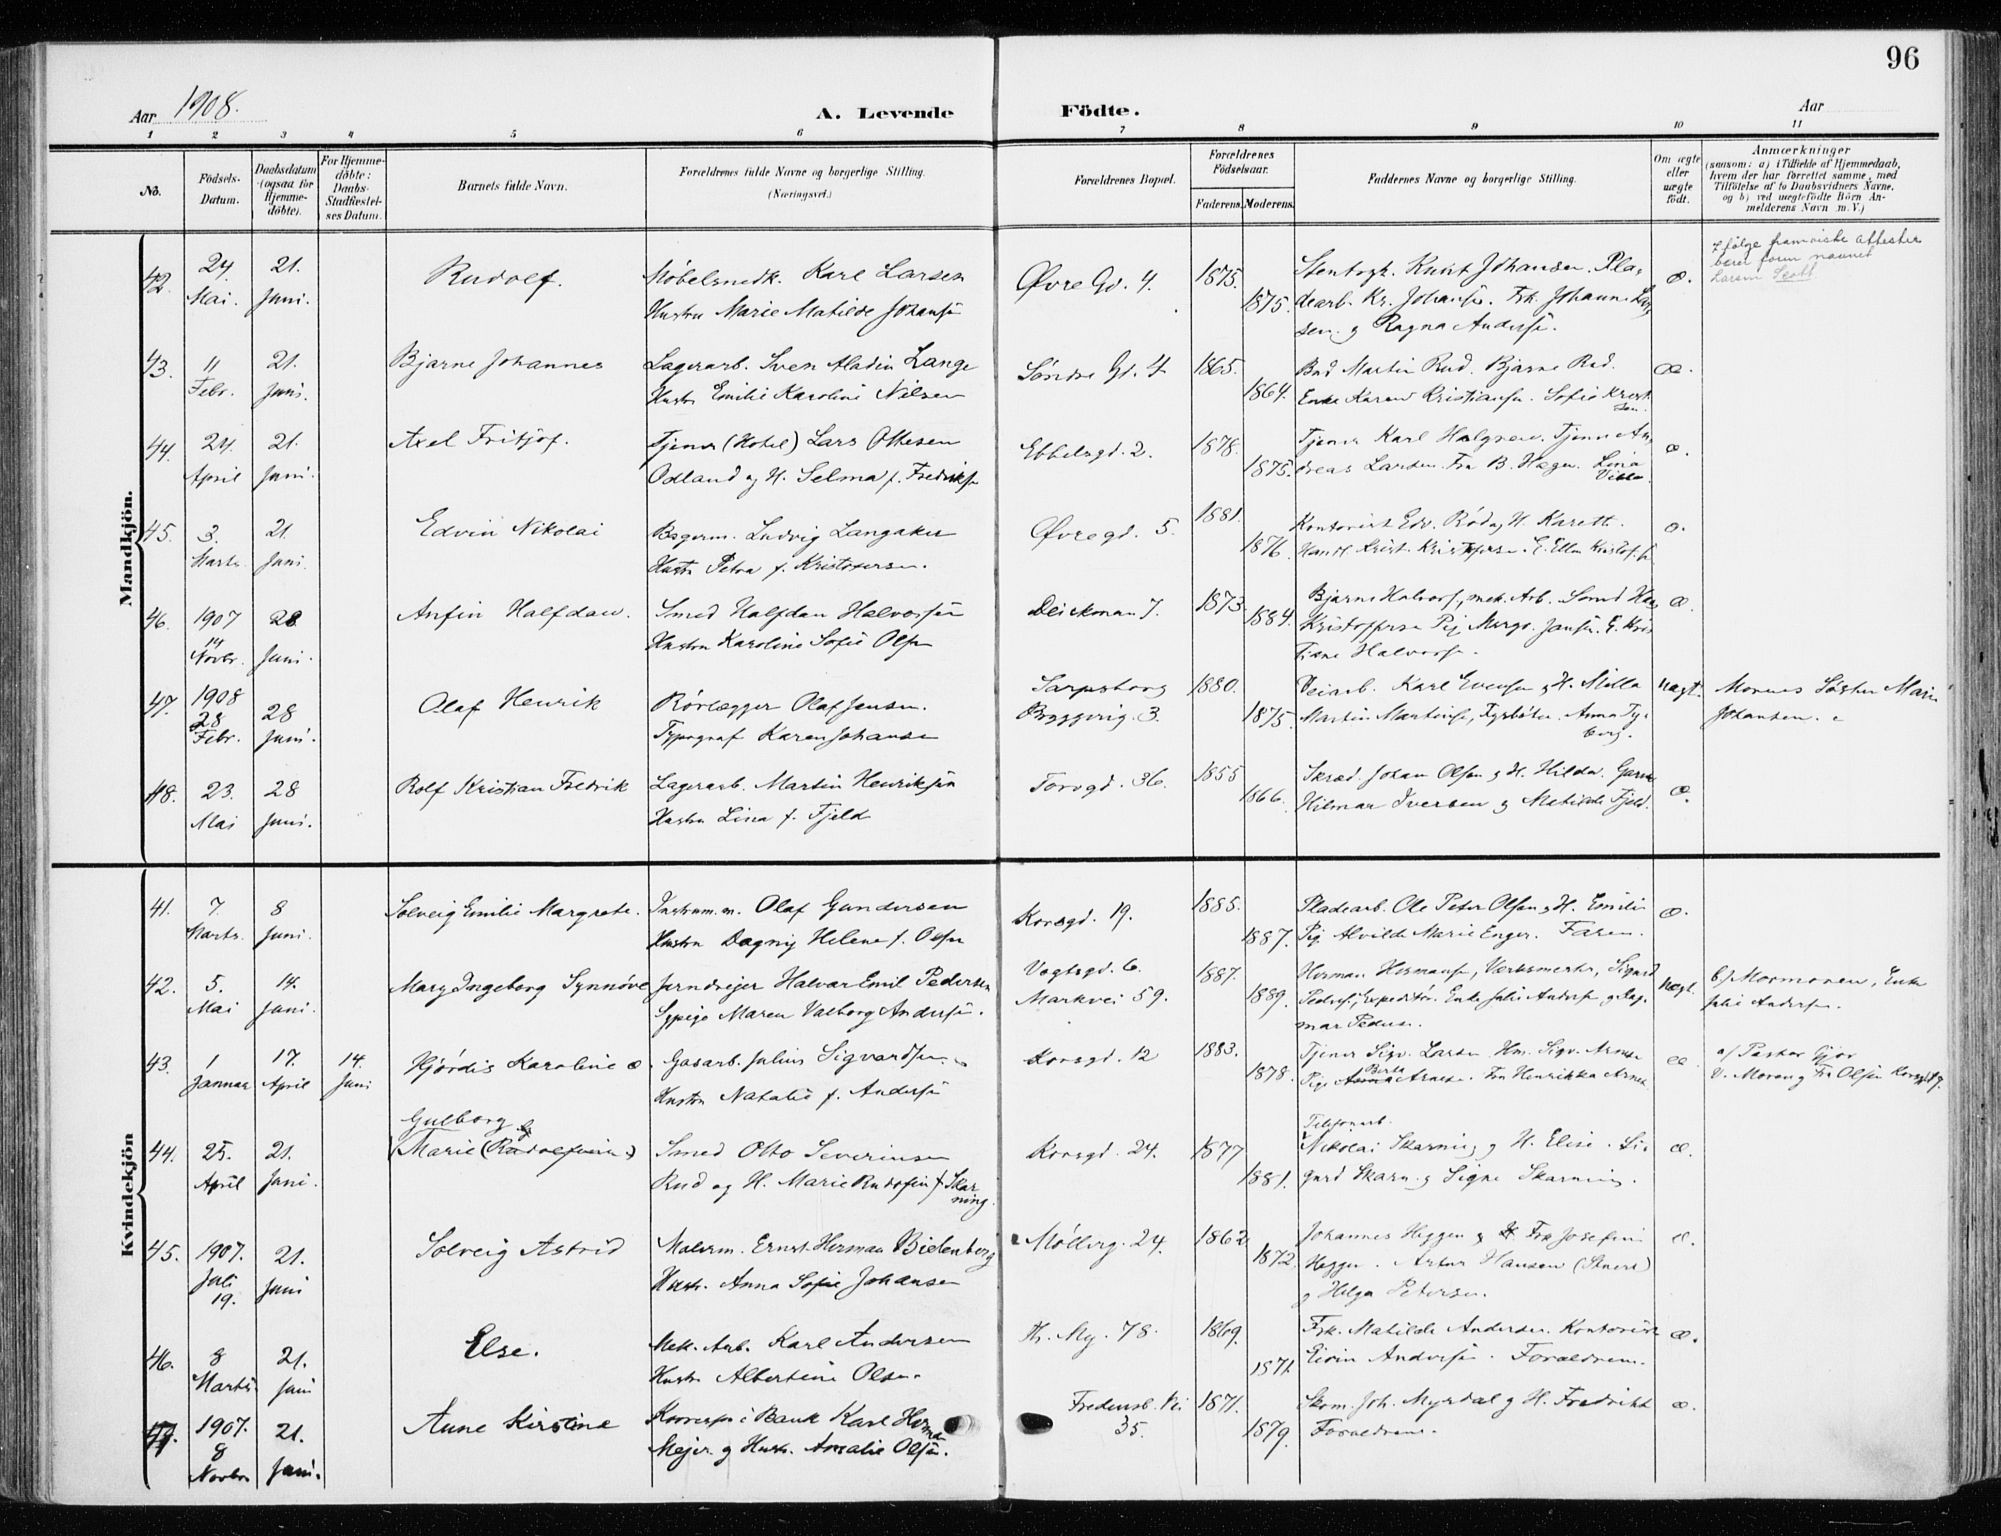 96
Aar 1908.
A. Levende Födte.
Aar
1 2 3 4 5 6 7 8 9 10 11
No.
Födsels-
Datum.
Daabsdatum
(ogsaa for
Hjemme-
döbte).
For Hjemme-
döbte:
Daabs-
Stadfæstel-
ses Datum.
Barnets fulde Navn.
Forældrenes fulde Navne og borgerlige Stilling.
(Næringsvei.)
Forældrenes Bopæl.
Forældrenes
Födselsaar.
Faderens. Moderens.
Faddernes Navne og borgerlige Stilling.
Om ægte
eller
uægte
födt.
Anmærkninger
(saasom: a) i Tilfælde af Hjemmedaab,
hvem der har forrettet samme, med
Tilföielse af to Daabsvidners Navne,
og b) ved uægtefödte Börn An-
melderens Navn m. V.)
Mandkjön.
42. 24 Mai. 21. Juni.
Rudolf.
Møbelsnedk. Karl Larsen
Hustru Marie Matilde Johansn
Øvre Gd. 4.
1875. 1875.
Stenhugk. Knut Johansen. Pla-
dearb. Kr. Johansn. Frk. Johanne Lar-
sen. g Ragna Andersn.
æ.
43. 11 Febr. 21. Juni.
Bjarne Johannes
Lagerarb. Sven Aladin Lange
Hustr Emilie Karoline Nilsen
Søndre Gd. 4
1865. 1864.
Bud Martin Rud. Bjarne Rud.
Enke Karen Kristiansn. Sofie Krist
sen.
æ.
44. 24. April 21. Juni.
Axel Fritjof.
Tjener (Hotel) Lars Ottesen
Odland og H. Selma f. Fredriksn
Ebbelsgd. 2.
1878. 1875.
Tjener Karl Halgren. Tjener An-
dreas Larsen. Fru B. Hagen. Lina
æ.
45. 3. Marts 21. Juni.
Edvin Nikolai
Bagerm. Ludvig Langaker
Hustr Petra f. Kristofersen.
Øvregd. 5.
1881. 1876.
Kontorist Edv. Röd og H. Karett.
æ.
46. 1907 14 Novbr. 28 Juni.
Anfin Halfdan.
Smed Halfdan Halvorsen
Hustru Karoline Sofie Olsn
Deichman 7.
1873. 1884.
Bjarne Halvors, mek. Arb. Smed Har
Kristoffersn Pig Margr. Jansn. E. Kris
tiane Halvorsn.
æ.
47. 1908 28 Febr. 28 Juni.
Olaf Henrik
Rørlægger Olaf Jensen.
Typograf Karen Johansen
Sarpsborg
Bryggerig. 3.
1880. 1875.
Veiarb. Karl Evensn og H. Milla
Martin Martinsn, Fyrbøter. Anna Ty-
berg.
uægt.
Morens Søster Marie
Johansen.
48. 23. Mai 28 Juni.
Rolf Kristian Fredrik
Lagerarb. Martin Henriksen
Hustru Lina f. Fjeld
Torvgd. 36.
1855 1866.
Skræd. Johan Olsen g H. Hilda.
Hilmar Iversen g Matilde Fjeld.
æ.
Kvindekjön
41. 7. Marts. 8 Juni.
Solveig Emilie Margrete.
Instrum. m. Olaf Gundersen
Hustru Dagny Helene f. Olsen
Korsgd. 19.
1885. 1887.
Pladearb. Ole Peter Olsen g H. Emilie
Pig. Alvilde Marie Enger. Faren.
æ.
42. 5. Mai 14. Juni.
Mary Ingeborg Synnøve
Jerndrejer Halvar Emil Pedersen
Sypige Maren Valborg Andersn.
Vogtsgd. 6.
Markvei 59.
1887. 1889.
Herman Hermansn, Værksmester, Sigurd
Pedersn, Expeditör. Enke Julie Andersn g Dag-
mar Pedersn.
uægt.
b) Mormoren, Enke
Julie Andersn.
43. 1 Januar 17. April 14. Juni
Hjördis Karoline
Gasarb. Julius Sigvardsen.
Hustru Natalie f. Andersn
Korsgd. 12
1883. 1878.
Tjener Sigv. Larsen
Pige Berta Arnesn. Fru Henrikka Arnes.
æ
a) Pastor Gjør
V. Moren g Fru Olsen Korsgd 19.
44. 25. April 21. Juni.
Gulborg
Marie (Rudolfine)
Smed Otto Severinsen
Rud og H. Marie Rudofine f. Skar
ning.
Korsgd. 24.
1877 1881.
Telefonarb.
Nikolai Skarning g H. Elise. Si-
gurd Skarn. g Signe Skarning.
æ.
45. 1907. Juli 19. 21. Juni
Solveig Astrid
Malerm. Ernst Herman Bielenberg
Hustr. Anna Sofie Johansen
Møllerg. 24.
1862 1872.
Johannes Heggen g Fru Josefine
Heggen. Artur Hansen
g Helga Petersen.
æ.
46. 8 Marts 21. Juni
Else.
Mek. Arb. Karl Andersen
Hustr Albertine Olsn.
Th. My. 78.
1869. 1871.
Frk. Matilde Andersen. Kontorist
Eivin Andersn. Forældrene.
æ.
47. 1907. 8 Novbr 21. Juni.
Anne Kirstine
Korresp. i Bank Karl Herman
Mejer. g Hustr. Amalie Olsen.
Fredensb. Vei
35.
1871. 1879.
Skom. Joh. Myrdal g H. Fredrikke
Forældrene.
æ.